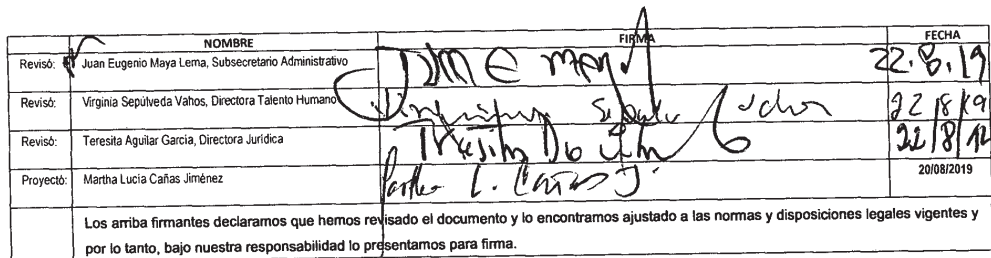 NOMBRE FIRMA FECHA
Revisó: Juan Eugenio Maya Lema, Subsecretario Administrativo 22.8.19
Revisó: Virginia Sepúlveda Vahos, Directora Talento Humano 22/8/19
Revisó: Teresita Aguilar García, Directora Jurídica 22/8/
Proyectó: Martha Lucía Cañas Jiménez L. Cañas J. 20/08/2019
Los arriba firmantes declaramos que hemos revisado el documento y lo encontramos ajustado a las normas y disposiciones legales vigentes y
por lo tanto, bajo nuestra responsabilidad lo presentamos para firma.